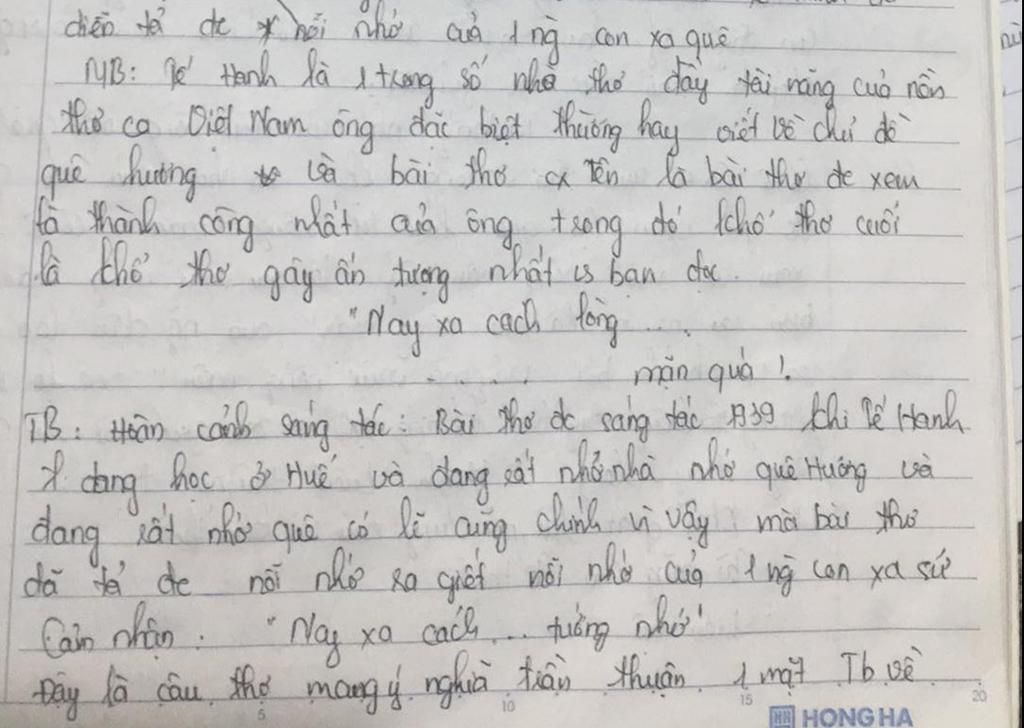 diễn tả đc nỗi nhớ của 1 ng con xa quê
MB: Tế Hanh là 1 trong số nhà thơ đầy tài năng của nền
thơ ca Việt Nam ông đặc biệt thường hay viết về chủ đề
quê hương và bài thơ cx tên là bài thơ đc xem
là thành công nhất của ông trong đó khổ thơ cuối
là khổ thơ gây ấn tượng nhất vs bạn đọc.
"Nay xa cách lòng ....
. . . . . mặn quá!
TB: Hoàn cảnh sáng tác: Bài thơ đc sáng tác 1939 khi Tế Hanh
đang học ở Huế và đang rất nhớ nhà nhớ quê Hương và
đang rất nhớ quê có lẽ cũng chính vì vậy mà bài thơ
đã tả đc nỗi nhớ da giết nỗi nhớ của 1 ng con xa sứ
Cảm nhận: "Nay xa cách... tưởng nhớ"
Đây là câu thơ mang ý nghĩa trần thuận 1 mặt Tb về
5 10 15 20
HH HONG HA